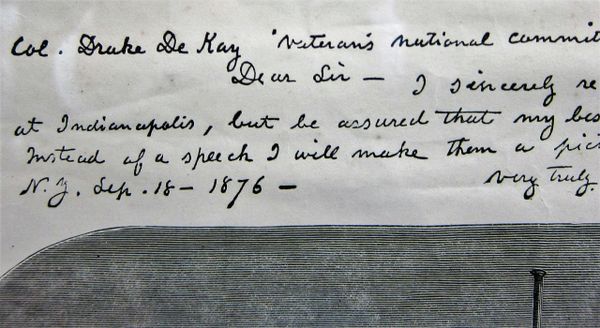 Col. Drake De Kay "Veteran's national commit
Dear Sir — I sincerely re
at Indianapolis, but be assured that my bes
Instead of a speech I will make them a pic
N.Y. Sep. 18 — 1876 — very truly